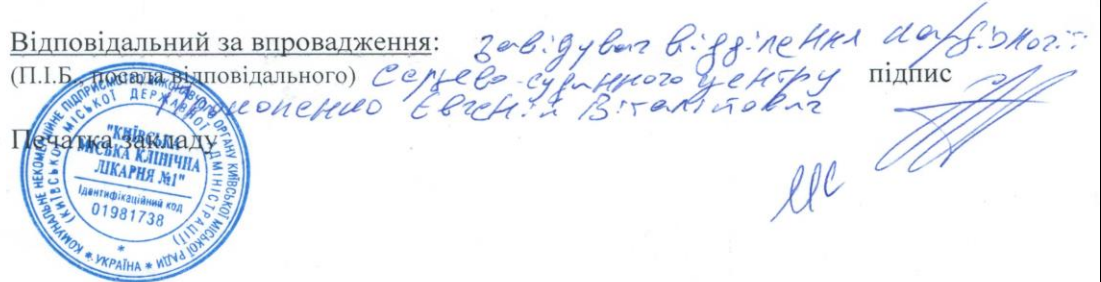 Відповідальний за впровадження: завідувач відділення кардіології
(П.І.Б., посада відповідального) Серцево-судинного центру підпис
Євгеній Віталійович
Печатка закладу
КОМУНАЛЬНЕ НЕКОМЕРЦІЙНЕ ПІДПРИЄМСТВО ВИКОНАВЧОГО ОРГАНУ КИЇВСЬКОЇ МІСЬКОЇ РАДИ
(КИЇВСЬКОЇ МІСЬКОЇ ДЕРЖАВНОЇ АДМІНІСТРАЦІЇ)
"КИЇВСЬКА
МІСЬКА КЛІНІЧНА
ЛІКАРНЯ №1"
Ідентифікаційний код
01981738
* УКРАЇНА *